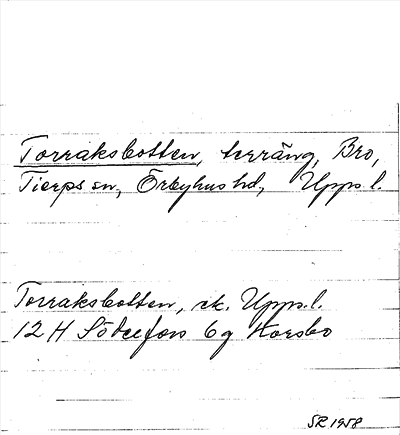 Torraksbotten, terräng, Bro,
Tierps sn, Örbyhus hd, Upps. l.
Torraksbotten, ek. Upps. l.
12 H Söderfors 6g Horsbo
SR 1958